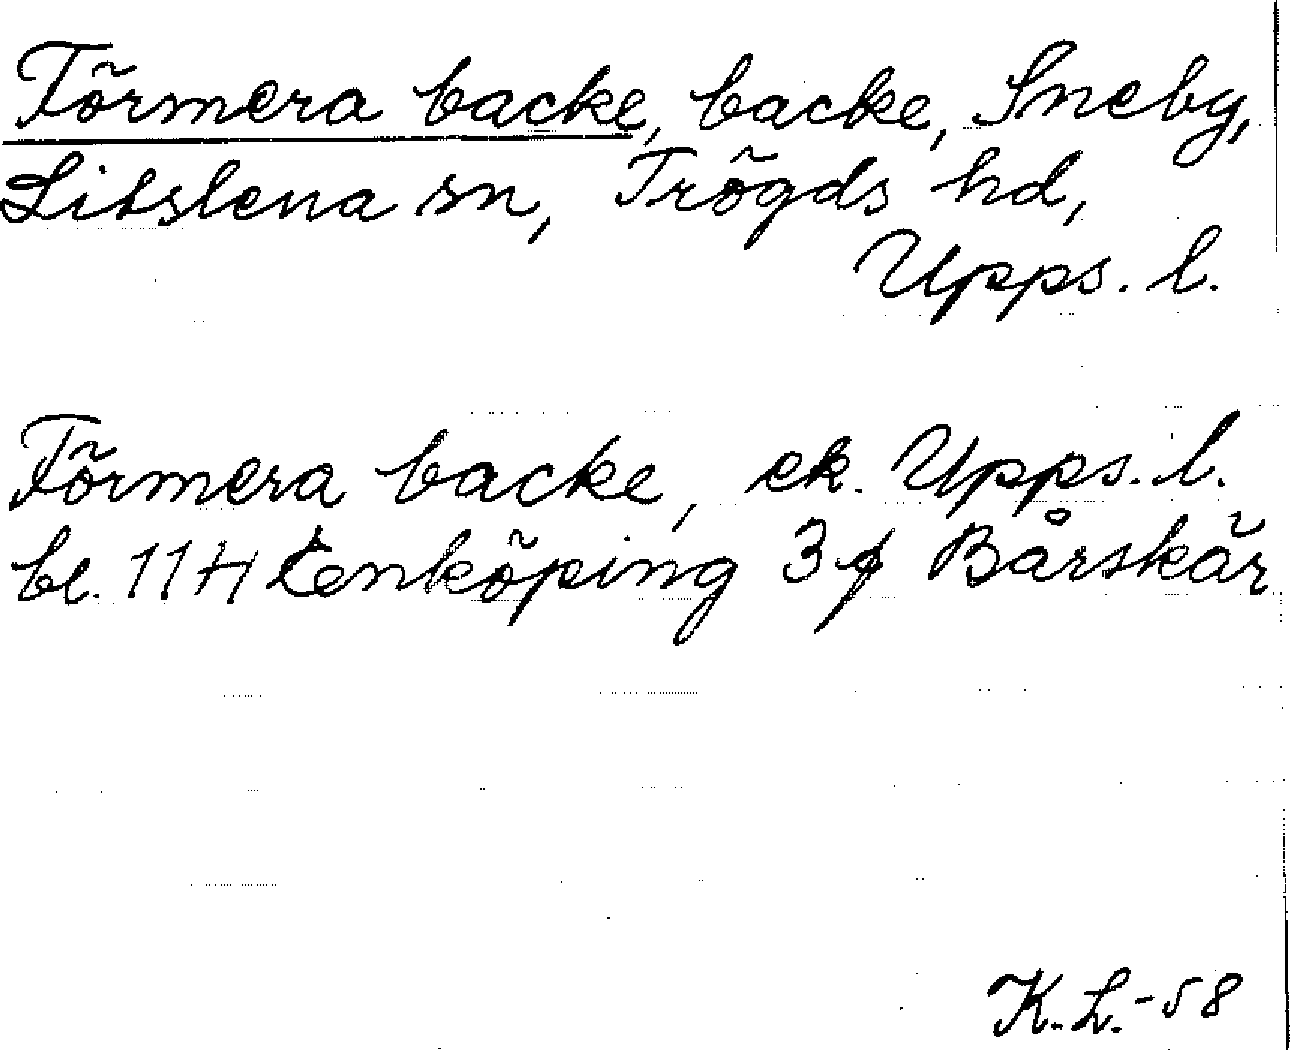 Förmera backe, backe, Sneby,
Litslena sn, Trögds hd,
Upps. l.
Förmera backe, ek. Upps. l.
bl. 11 H Enköping 3 f Bårskär
K.L.-58